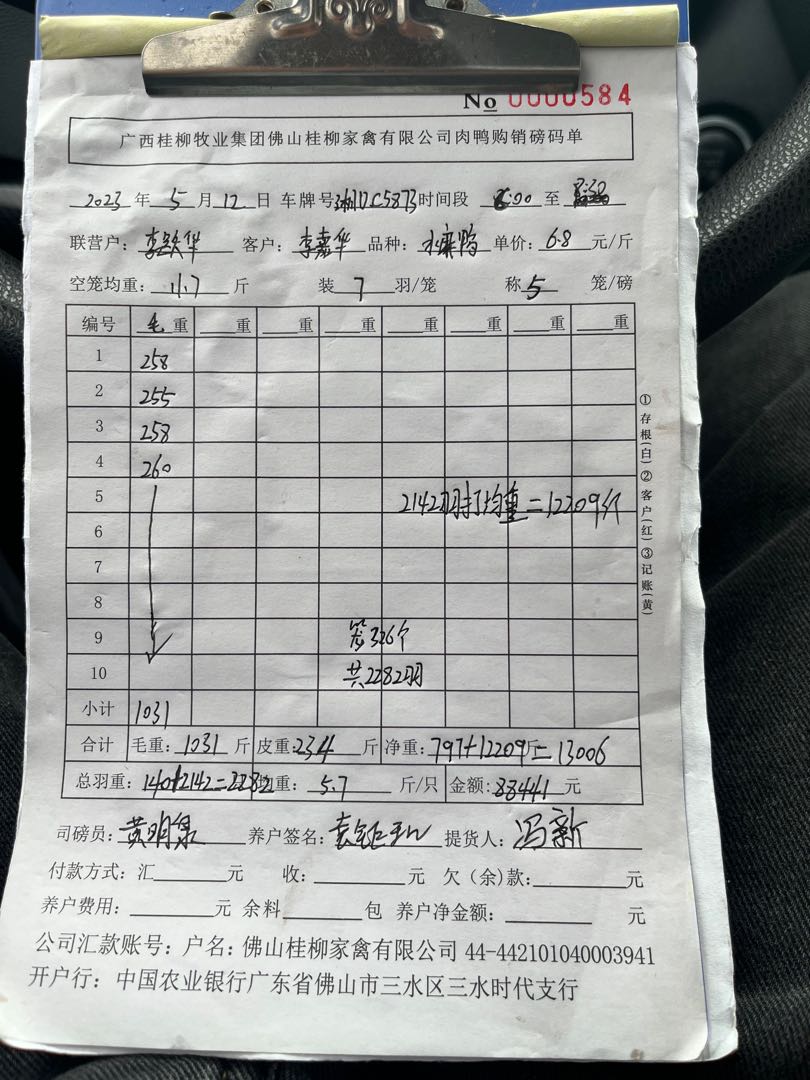 No 0000584
广西桂柳牧业集团佛山桂柳家禽有限公司肉鸭购销磅码单
2023 年 5 月 12 日 车牌号 湘DC5873 时间段 6:00 至 8:30
联营户: 李跃华 客户: 李嘉华 品种: 水麻鸭 单价: 6.8 元/斤
空笼均重: 11.7 斤 装 7 羽/笼 称 5 笼/磅
编号 毛重 重 重 重 重 重 重 重
1 258
2 255
3 258
4 260
5 2142羽打均重=12209斤
6
7
8
9 笼326个
10 共2282羽
小计 1031
合计 毛重: 1031 斤 皮重: 234 斤 净重: 797+12209斤=13006
总羽重: 140+2142=2282 均重: 5.7 斤/只 金额: 88441 元
司磅员: 黄明泉 养户签名: 提货人: 冯新
付款方式: 汇 元 收: 元 欠(余)款: 元
养户费用: 元 余料 包 养户净金额: 元
公司汇款账号: 户名: 佛山桂柳家禽有限公司 44-442101040003941
开户行: 中国农业银行广东省佛山市三水区三水时代支行
①存根(白)②客户(红)③记账(黄)